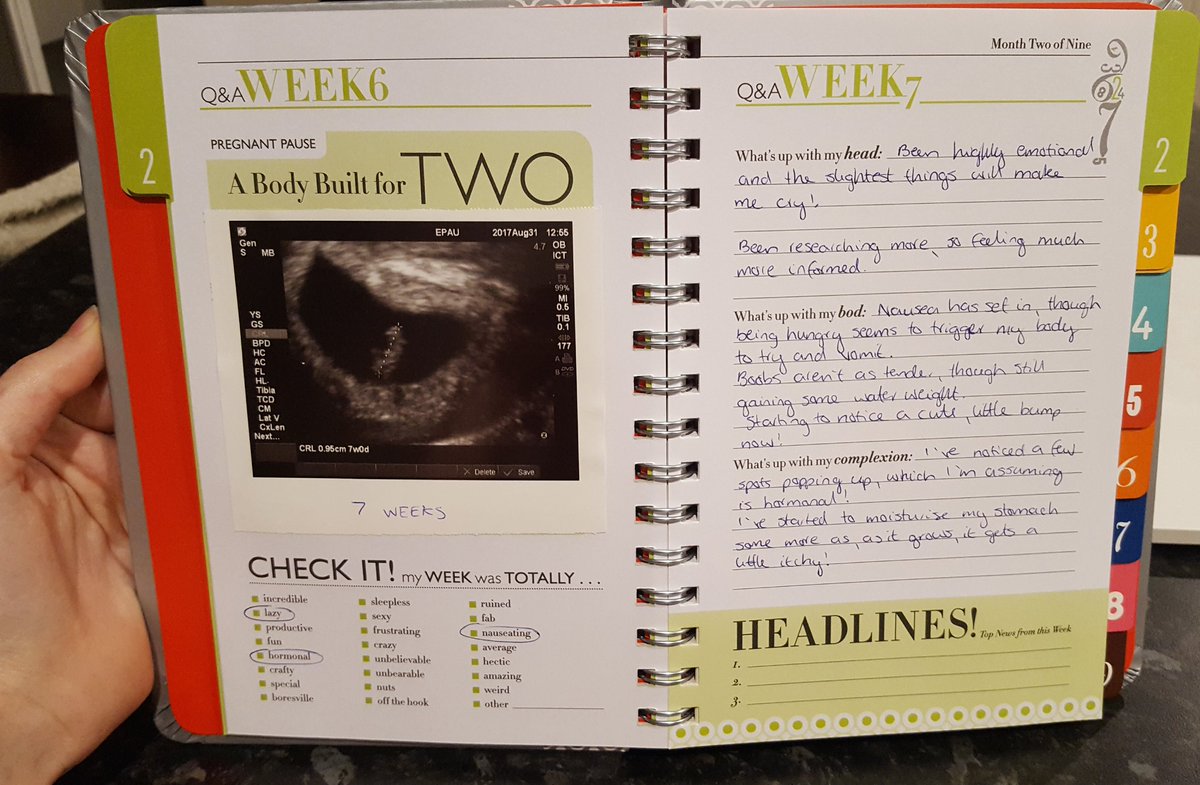 2
Q&A WEEK 6
PREGNANT PAUSE
A Body Built for TWO
EPAU 2017Aug31 12:55
Gen
S MB
4.7 OB
ICT
99%
MI
0.5
TIB
0.1
177
A
B
YS
GS
BPD
HC
AC
FL
HL
Tibia
TCD
CM
Lat V
CxLen
Next...
CRL 0.95cm 7w0d
Delete Save
7 WEEKS
CHECK IT! my WEEK was TOTALLY . . .
incredible
lazy
productive
fun
hormonal
crafty
special
boresville
sleepless
sexy
frustrating
crazy
unbelievable
unbearable
nuts
off the hook
ruined
fab
nauseating
average
hectic
amazing
weird
other
Month Two of Nine
Q&A WEEK 7
What's up with my head: Been highly emotional
and the slightest things will make
me cry!
Been researching more, so feeling much
more informed.
What's up with my bod: Nausea has set in, though
being hungry seems to trigger my body
to try and vomit.
Boobs aren't as tender, though still
gaining some water weight.
Starting to notice a cute, little bump
now!
What's up with my complexion: I've noticed a few
spots popping up, which I'm assuming
is hormonal!
I've started to moisturise my stomach
some more as, as it grows, it gets a
little itchy!
HEADLINES! Top News from this Week
1.
2.
3.
2
3
4
5
6
7
8